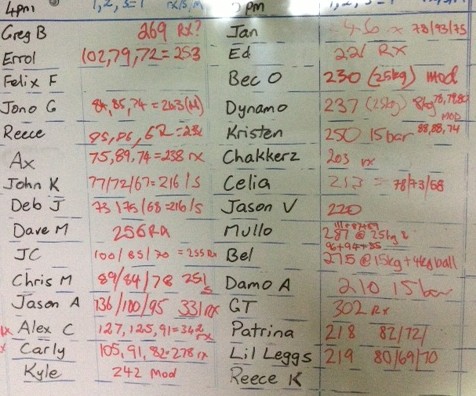 4pm
Greg B 269 RX?
Errol 102,79,72=253
Felix F
Jono G 84,85,74=243(M)
Reece
Ax 75,89,74=238 rx
John K 77/72/67=216/s
Deb J 73/75/68=216/s
Dave M 256 RX
JC 100/85/70=255 RX
Chris M 89/84/78 251
Jason A 136/100/95 331 rx
Alex C 127,125,91=342 rx
Carly 105,91,82=278 rx
Kyle 242 Mod
pm
Jan 78/93/75
Ed 221 RX
Bec O 230 (25kg) mod
Dynamo 237 (25kg) 8kg 78,79,80 MOD
Kristen 250 15bar 88,88,74
Chakkerz 203 rx
Celia 213 = 78/73/68
Jason V 220
Mullo 287 @ 25kg
Bel 275 @ 15kg + 4kg ball
Damo A 210 15bar
GT 302 RX
Patrina 218 82/72/
Lil Leggs 219 80/69/70
Reece K